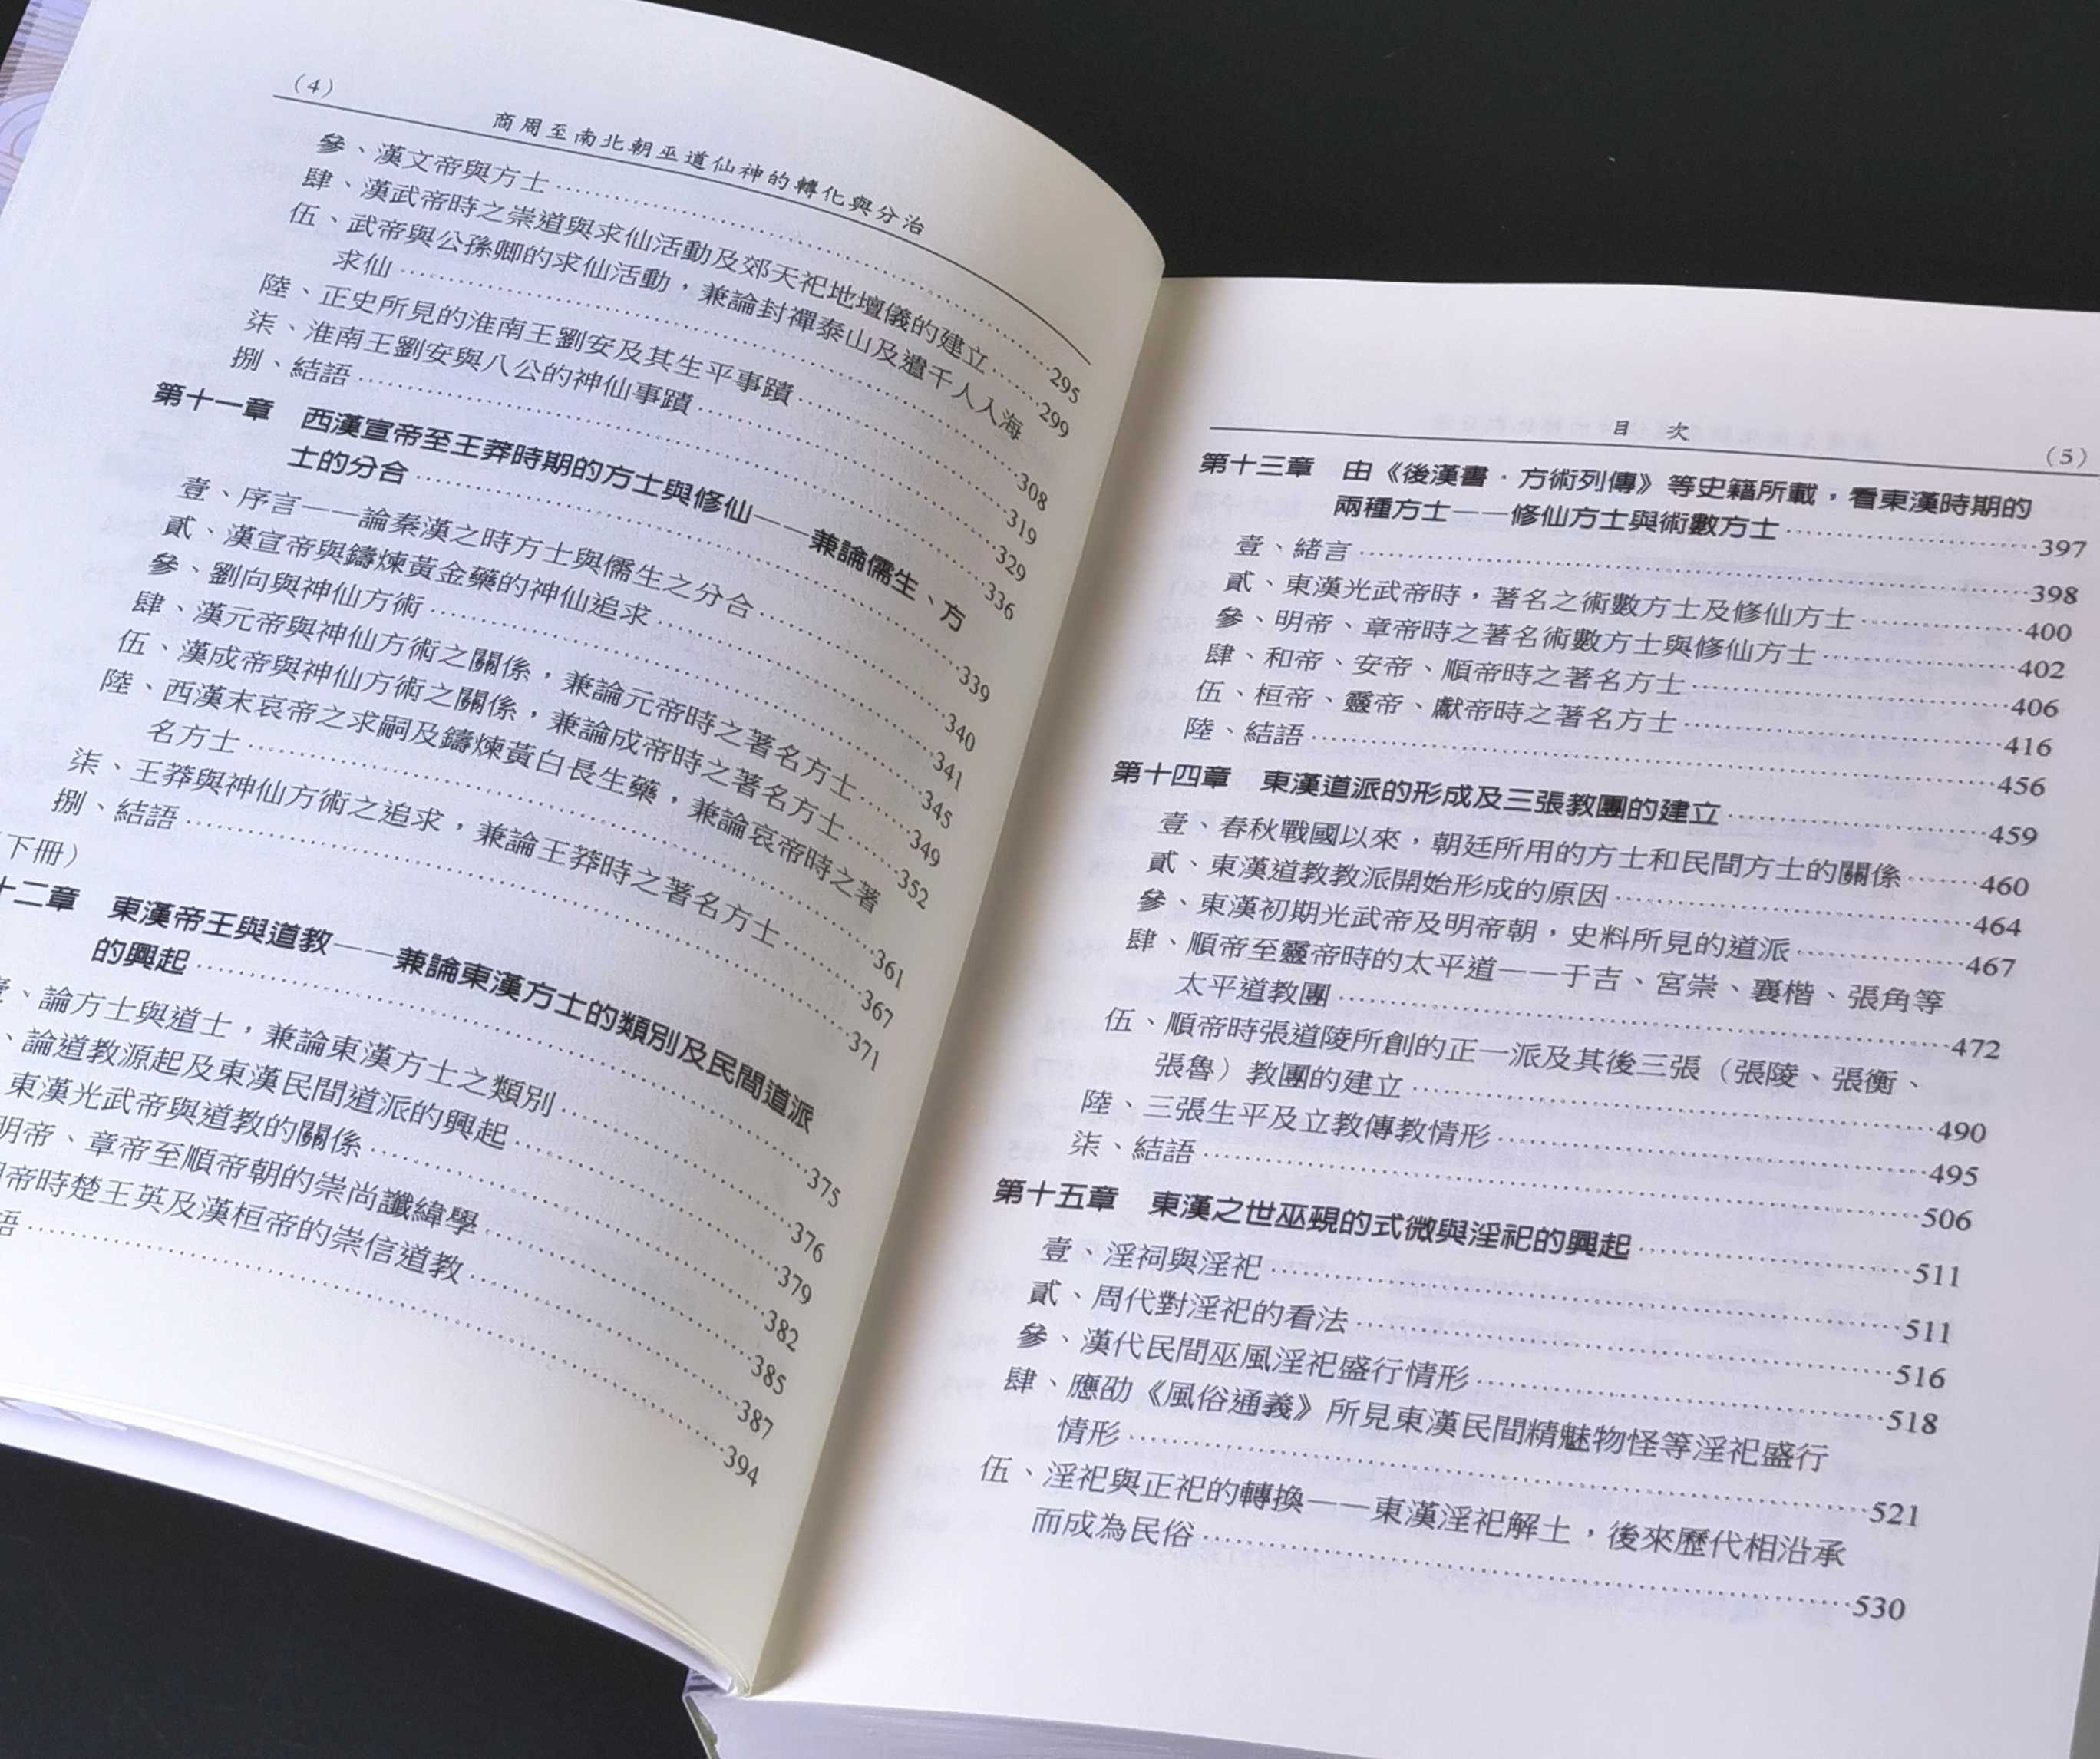 (4)
商周至南北朝巫道仙神的轉化與分治
參、漢文帝與方士……295
肆、漢武帝時之崇道與求仙活動及郊天祀地壇儀的建立……299
伍、武帝與公孫卿的求仙活動，兼論封禪泰山及遣千人入海
求仙……308
陸、正史所見的淮南王劉安及其生平事蹟……319
柒、淮南王劉安與八公的神仙事蹟……329
捌、結語……336
第十一章 西漢宣帝至王莽時期的方士與修仙——兼論儒生、方
士的分合……339
壹、序言——論秦漢之時方士與儒生之分合……340
貳、漢宣帝與鑄煉黃金藥的神仙追求……341
參、劉向與神仙方術……345
肆、漢元帝與神仙方術之關係，兼論元帝時之著名方士……349
伍、漢成帝與神仙方術之關係，兼論成帝時之著名方士……352
陸、西漢末哀帝之求嗣及鑄煉黃白長生藥，兼論哀帝時之著
名方士……361
柒、王莽與神仙方術之追求，兼論王莽時之著名方士……367
捌、結語……371
下冊）
十二章 東漢帝王與道教——兼論東漢方士的類別及民間道派
的興起……375
壹、論方士與道士，兼論東漢方士之類別……376
、論道教源起及東漢民間道派的興起……379
東漢光武帝與道教的關係……382
明帝、章帝至順帝朝的崇尚讖緯學……385
帝時楚王英及漢桓帝的崇信道教……387
語……394
目 次
(5)
第十三章 由《後漢書．方術列傳》等史籍所載，看東漢時期的
兩種方士——修仙方士與術數方士……397
壹、緒言……398
貳、東漢光武帝時，著名之術數方士及修仙方士……400
參、明帝、章帝時之著名術數方士與修仙方士……402
肆、和帝、安帝、順帝時之著名方士……406
伍、桓帝、靈帝、獻帝時之著名方士……416
陸、結語……456
第十四章 東漢道派的形成及三張教團的建立……459
壹、春秋戰國以來，朝廷所用的方士和民間方士的關係……460
貳、東漢道教教派開始形成的原因……464
參、東漢初期光武帝及明帝朝，史料所見的道派……467
肆、順帝至靈帝時的太平道——于吉、宮崇、襄楷、張角等
太平道教團……472
伍、順帝時張道陵所創的正一派及其後三張（張陵、張衡、
張魯）教團的建立……490
陸、三張生平及立教傳教情形……495
柒、結語……506
第十五章 東漢之世巫覡的式微與淫祀的興起……511
壹、淫祠與淫祀……511
貳、周代對淫祀的看法……516
參、漢代民間巫風淫祀盛行情形……518
肆、應劭《風俗通義》所見東漢民間精魅物怪等淫祀盛行
情形……521
伍、淫祀與正祀的轉換——東漢淫祀解土，後來歷代相沿承
而成為民俗……530